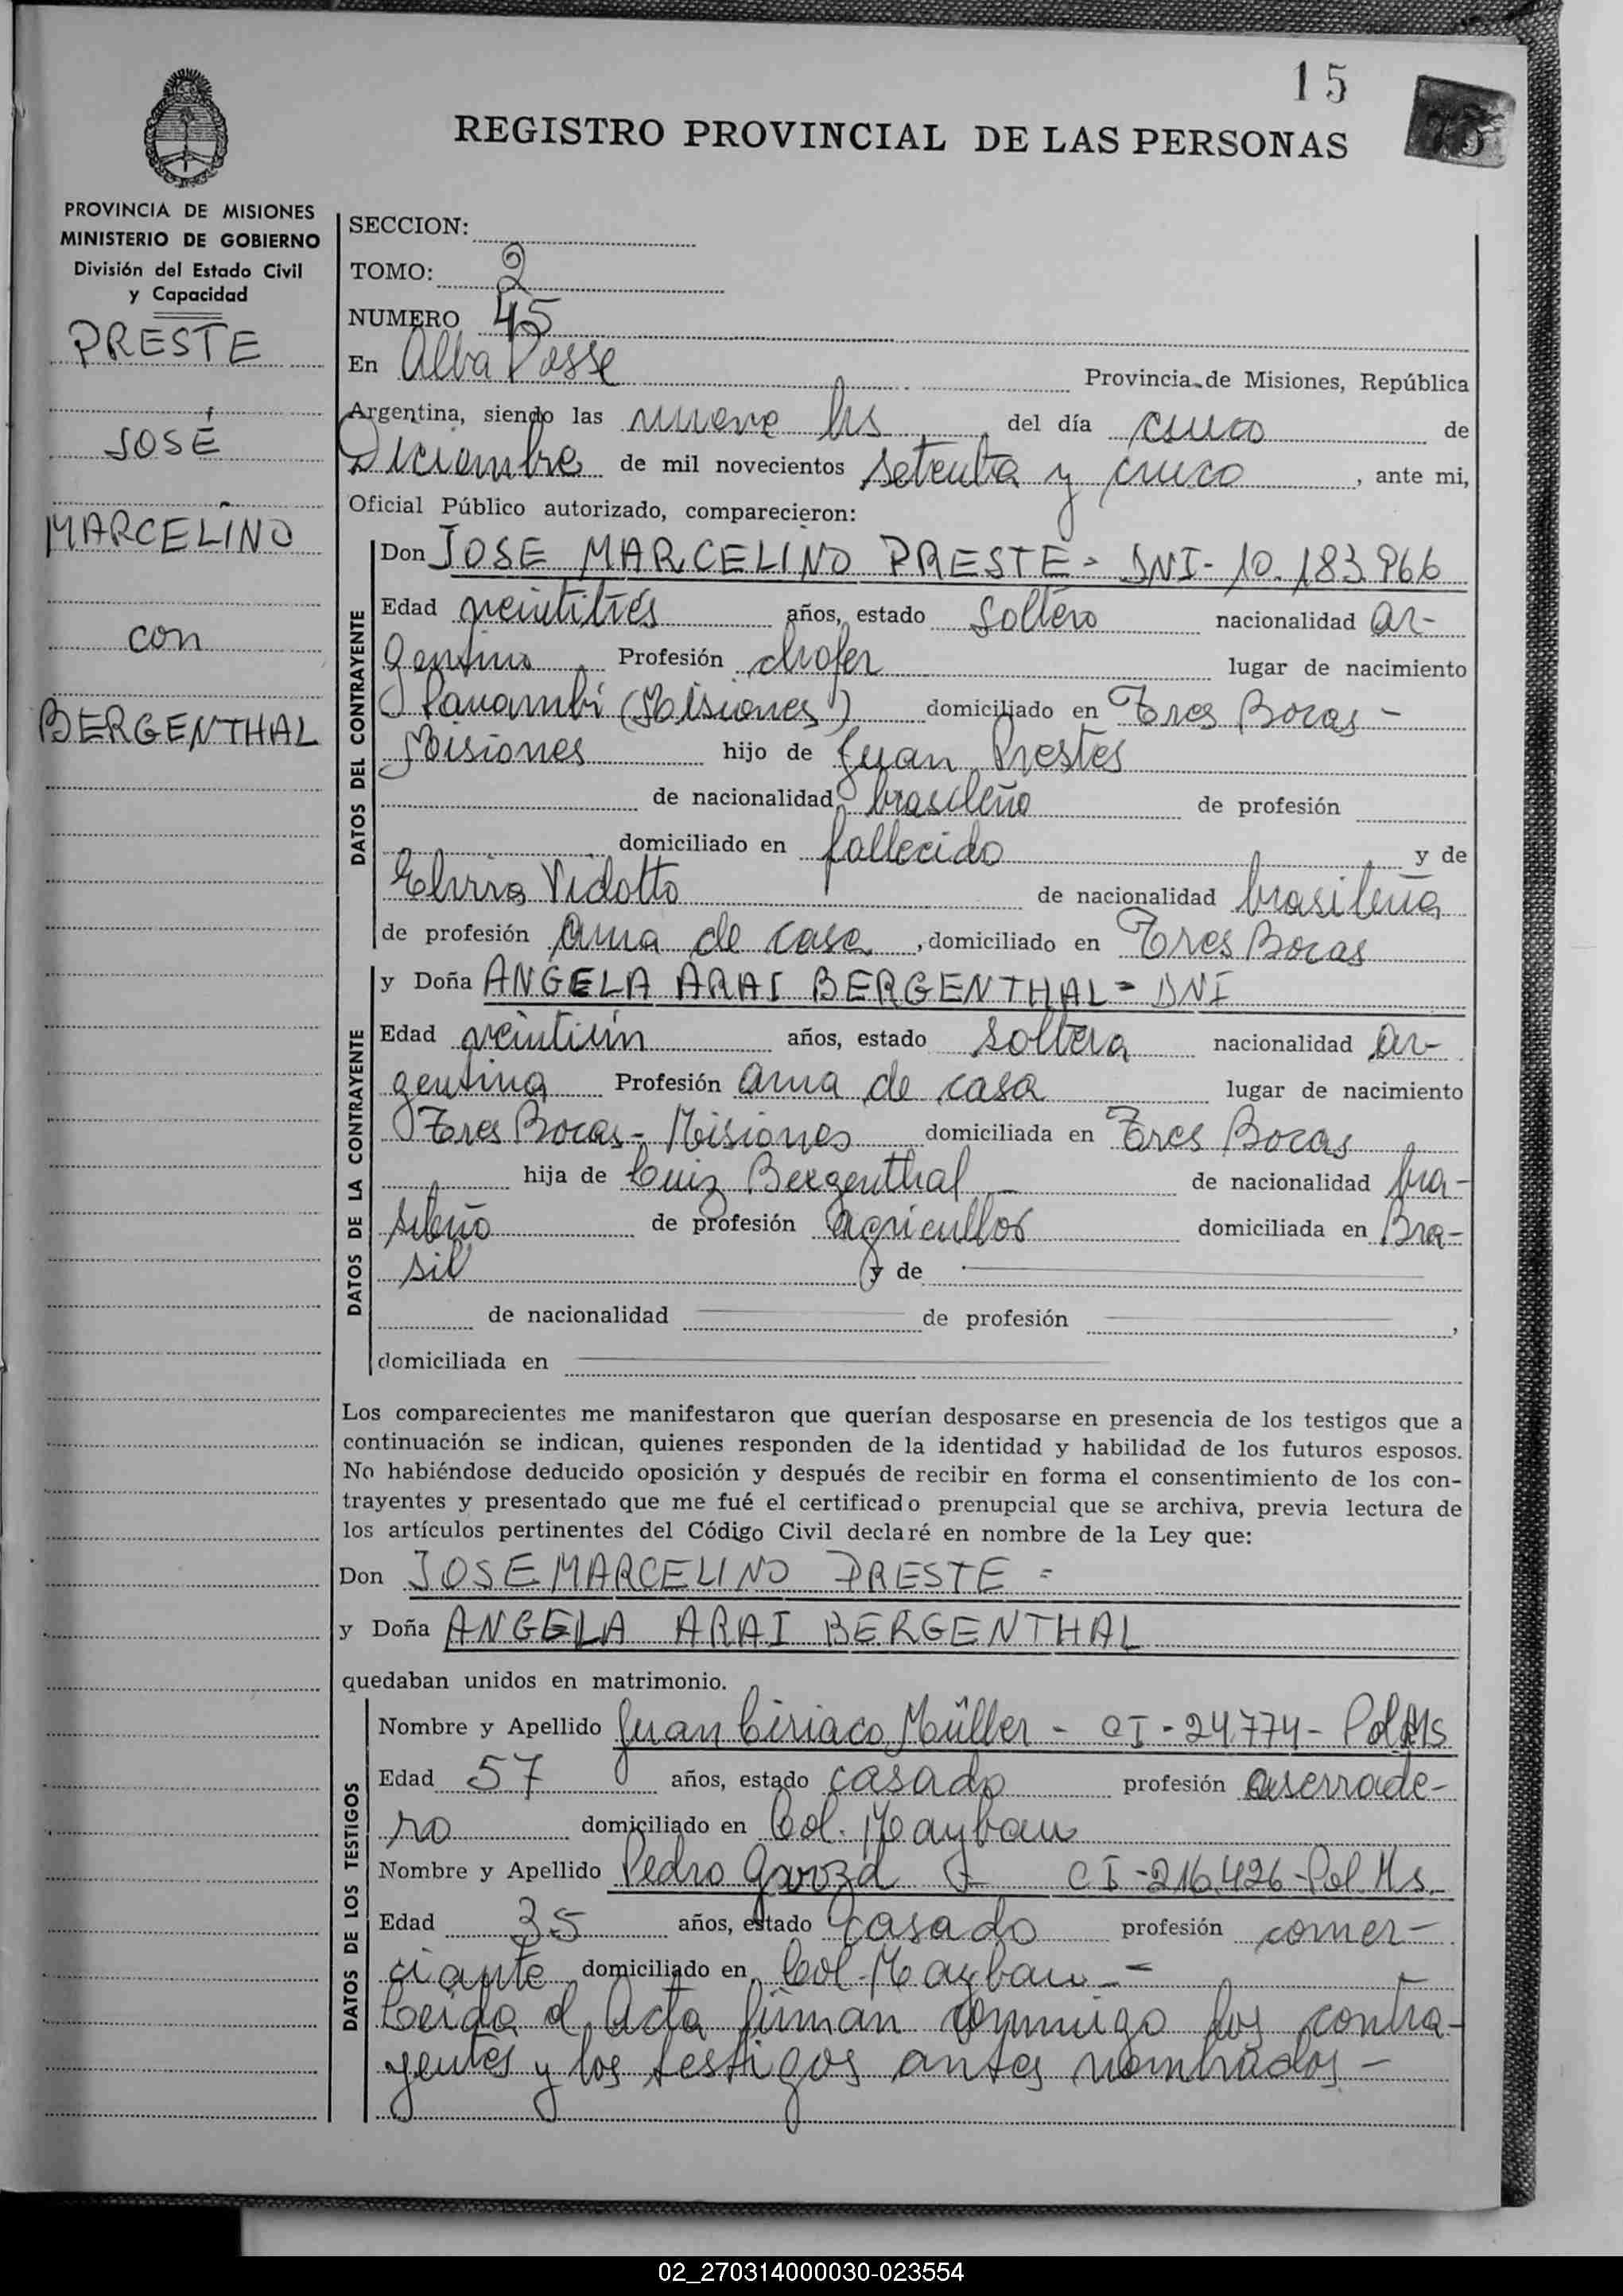 15
75
REGISTRO PROVINCIAL DE LAS PERSONAS
PROVINCIA DE MISIONES
MINISTERIO DE GOBIERNO
División del Estado Civil
y Capacidad
PRESTE
JOSÉ
MARCELINO
con
BERGENTHAL
SECCION:
TOMO: 2
NUMERO 45
En Alba Posse Provincia de Misiones, República
Argentina, siendo las nueve hs del día cinco de
Diciembre de mil novecientos setenta y cinco, ante mi,
Oficial Público autorizado, comparecieron:
DATOS DEL CONTRAYENTE
Don JOSE MARCELINO PRESTE - DNI - 10.183.966
Edad veintitrés años, estado Soltero nacionalidad ar-
gentino Profesión chofer lugar de nacimiento
Panambí (Misiones) domiciliado en Tres Bocas -
Misiones hijo de Juan Prestes
de nacionalidad brasileño de profesión
domiciliado en fallecido y de
Elvira Vidotto de nacionalidad brasileña
de profesión ama de casa, domiciliado en Tres Bocas
DATOS DE LA CONTRAYENTE
y Doña ANGELA ARAI BERGENTHAL - DNI
Edad veintiún años, estado soltera nacionalidad ar-
gentina Profesión ama de casa lugar de nacimiento
Tres Bocas - Misiones domiciliada en Tres Bocas
hija de Luiz Bergenthal - de nacionalidad bra-
sileño de profesión agricultor domiciliada en Bra-
sil y de
de nacionalidad de profesión ,
domiciliada en
Los comparecientes me manifestaron que querían desposarse en presencia de los testigos que a
continuación se indican, quienes responden de la identidad y habilidad de los futuros esposos.
No habiéndose deducido oposición y después de recibir en forma el consentimiento de los con-
trayentes y presentado que me fué el certificado prenupcial que se archiva, previa lectura de
los artículos pertinentes del Código Civil declaré en nombre de la Ley que:
Don JOSE MARCELINO PRESTE =
y Doña ANGELA ARAI BERGENTHAL
quedaban unidos en matrimonio.
DATOS DE LOS TESTIGOS
Nombre y Apellido Juan Ciriaco Müller - CI - 24.774 - Pol Ms
Edad 57 años, estado casado profesión aserrade-
ro domiciliado en Col.
Nombre y Apellido Pedro CI - 216.426 - Pol. Ms.
Edad 35 años, estado casado profesión comer-
ciante domiciliado en Col.
Leida el Acta firman conmigo los contra-
yentes y los testigos antes nombrados -
02_270314000030-023554